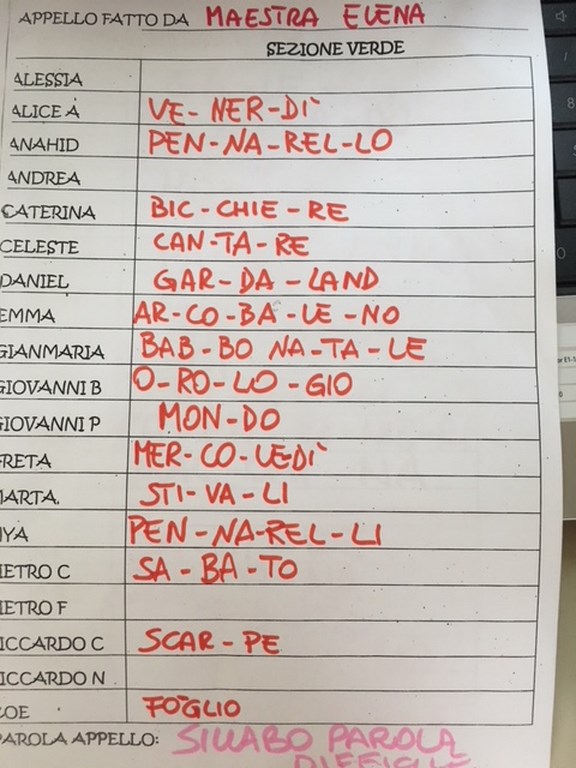 APPELLO FATTO DA MAESTRA ELENA
SEZIONE VERDE
ALESSIA
ALICE A VE-NER-DÌ
ANAHID PEN-NA-REL-LO
ANDREA
CATERINA BIC-CHIE-RE
CELESTE CAN-TA-RE
DANIEL GAR-DA-LAND
EMMA AR-CO-BA-LE-NO
GIANMARIA BAB-BO NA-TA-LE
GIOVANNI B O-RO-LO-GIO
GIOVANNI P MON-DO
RETA MER-CO-LEDÌ
ARTA STI-VA-LI
YA PEN-NA-REL-LI
IETRO C SA-BA-TO
IETRO F
ICCARDO C SCAR-PE
ICCARDO N
OE FO-GLIO
PAROLA APPELLO: SILLABO PAROLA
DIFFICILE